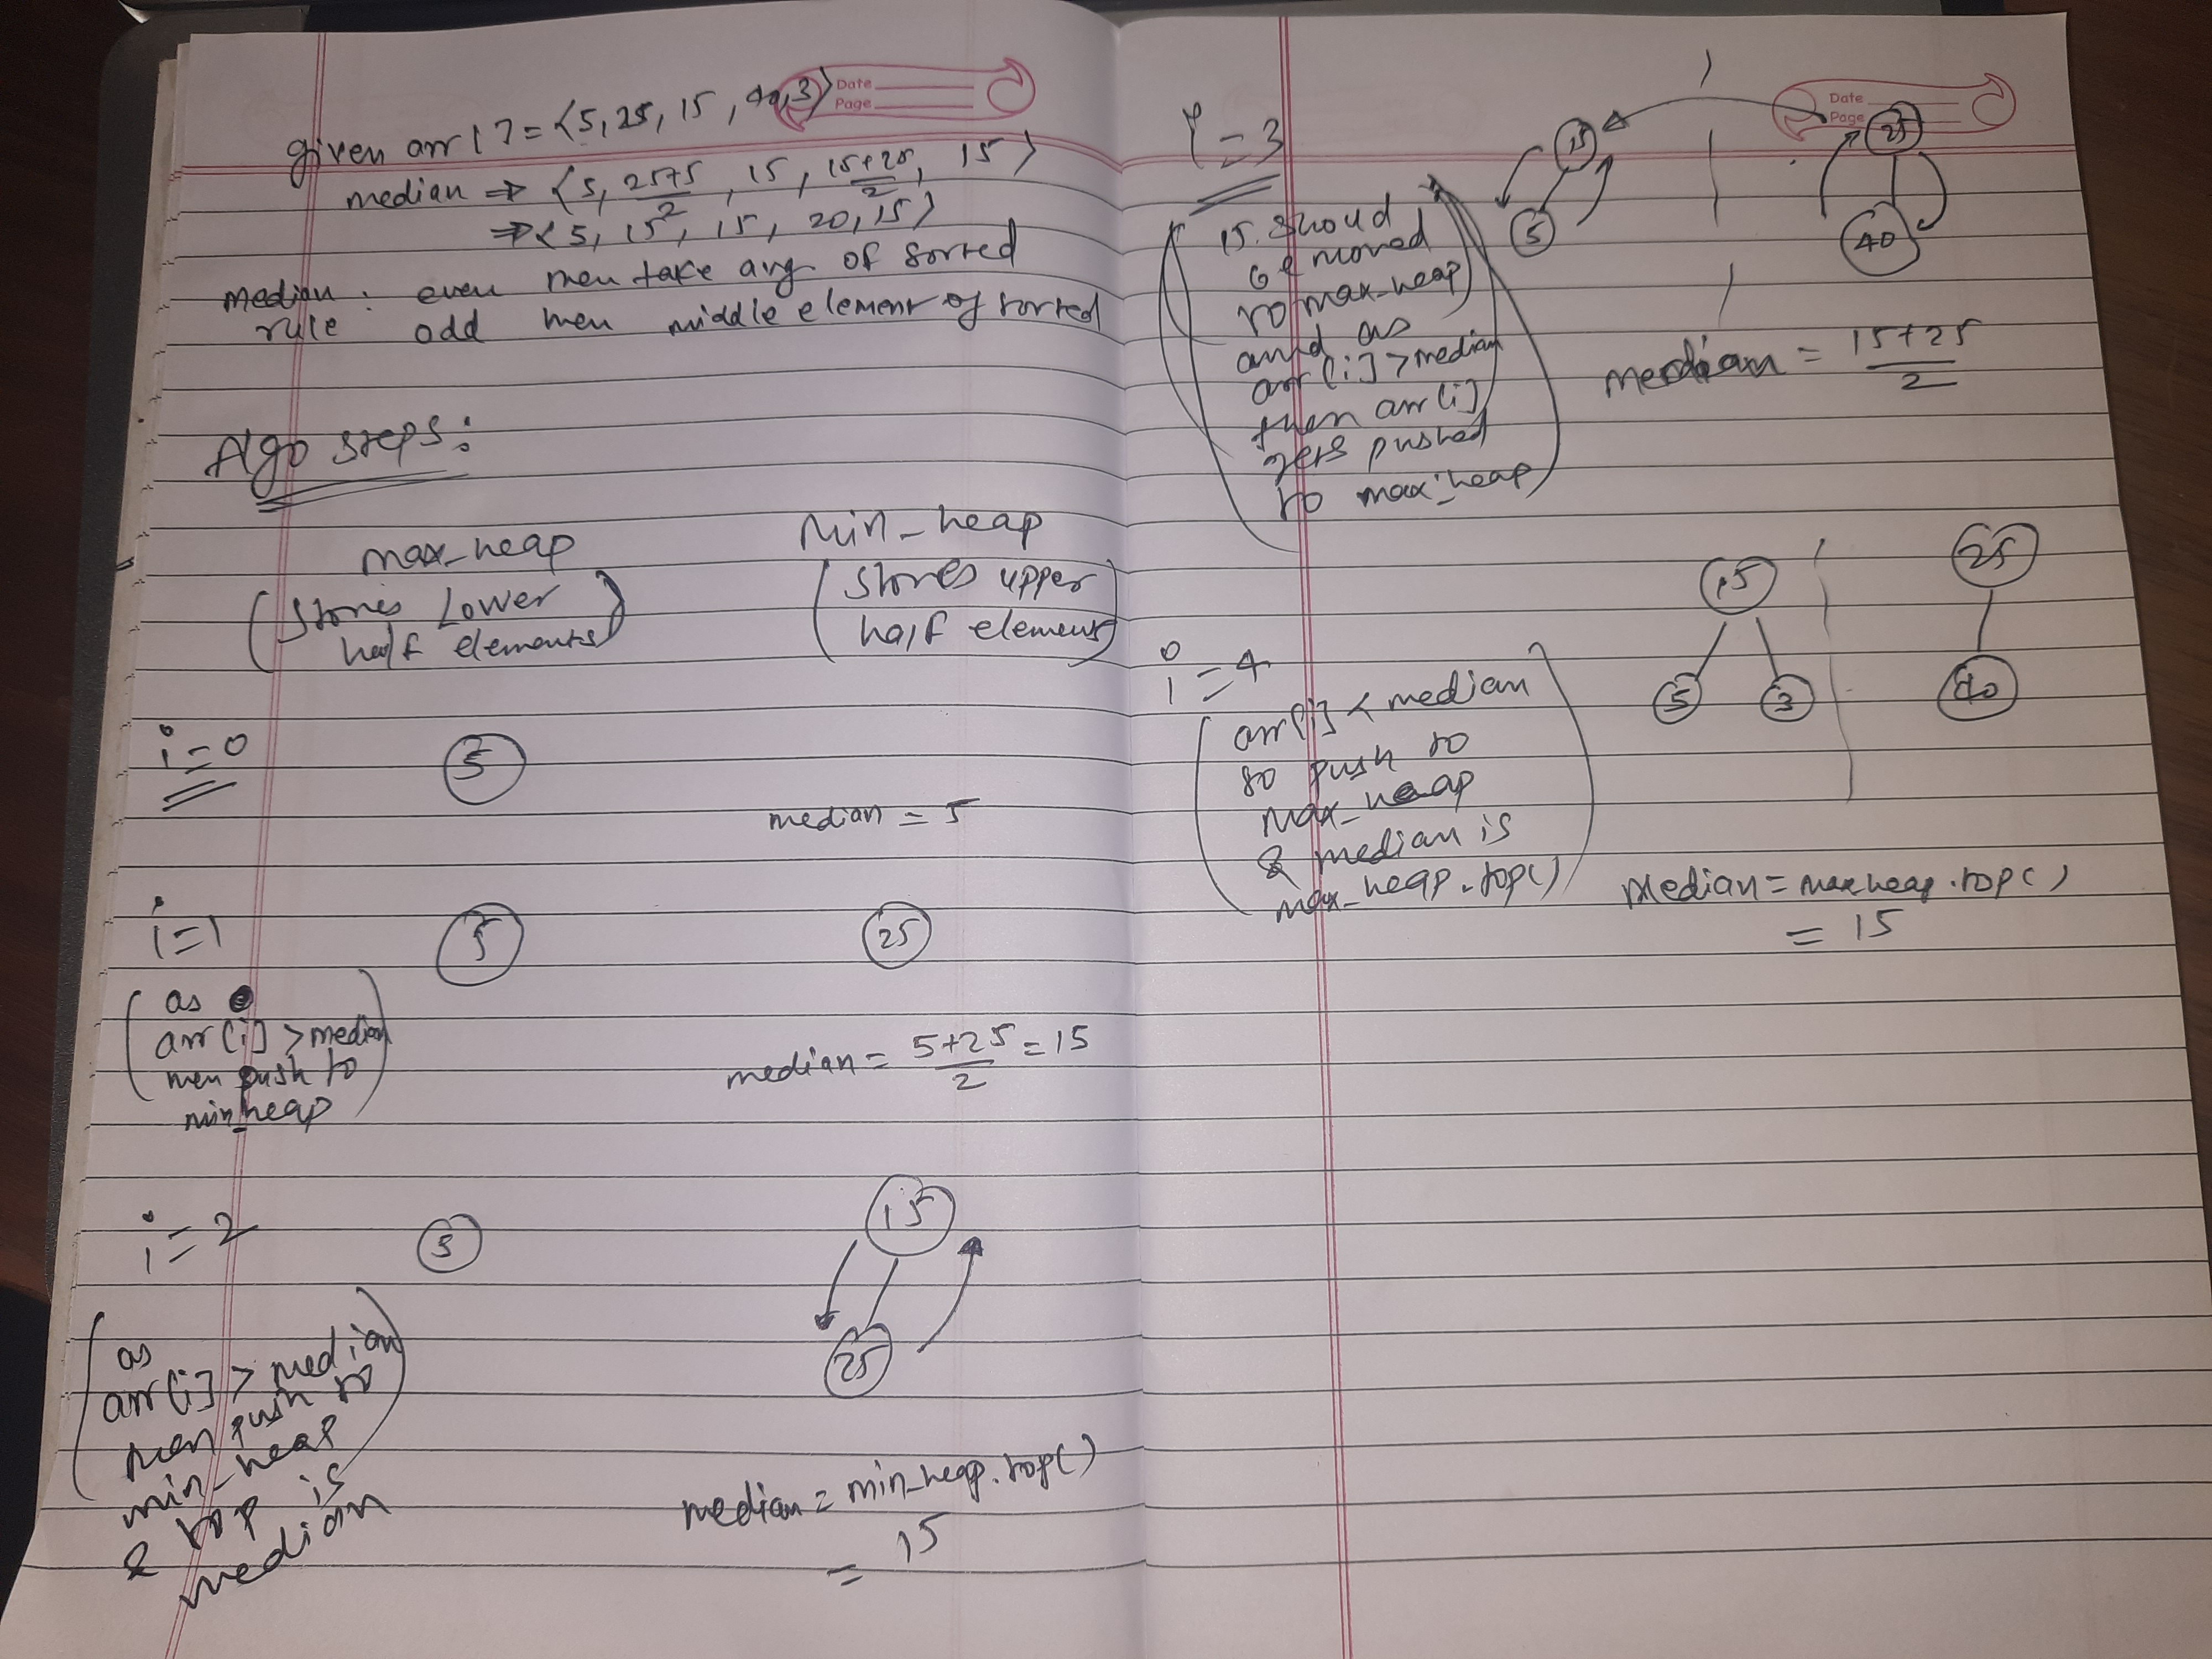 Date
Page
given arr[] = {5, 25, 15, 40, 3}
median ⇒ {5, 25+5/2, 15, 15+25/2, 15}
⇒ {5, 15, 15, 20, 15}
median: even then take avg of sorted
rule odd then middle element of sorted
Algo steps:
max_heap
(stores Lower
half elements)
Min_heap
(stores upper
half element)
i=0
5
median = 5
i=1
5
25
(as
arr[i] > median
then push to
min_heap)
median = 5+25/2 = 15
i=2
5
15
25
(as
arr[i] > median
then push to
min_heap
& top is
median
median = min_heap.top()
= 15
Date
Page
i=3
15
5
25
40
(15 shoud
be moved
to max_heap)
and as
arr[i] > median
then arr[i]
gets pushed
to max_heap)
median = 15+25/2
i=4
15
5
3
25
40
(arr[i] < median
so push to
max_heap
& median is
max_heap.top()
Median = maxheap.top()
= 15